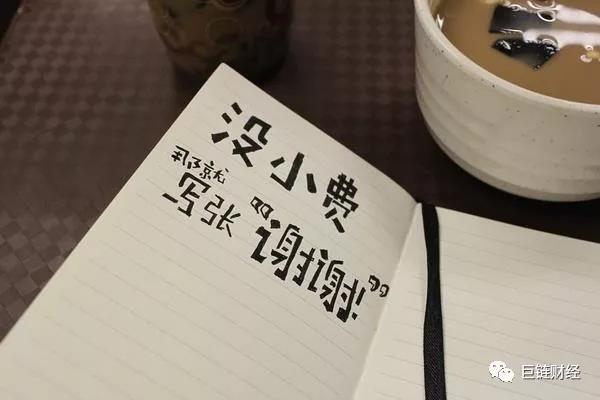 没小费
那就
写张“谢谢”
巨链财经